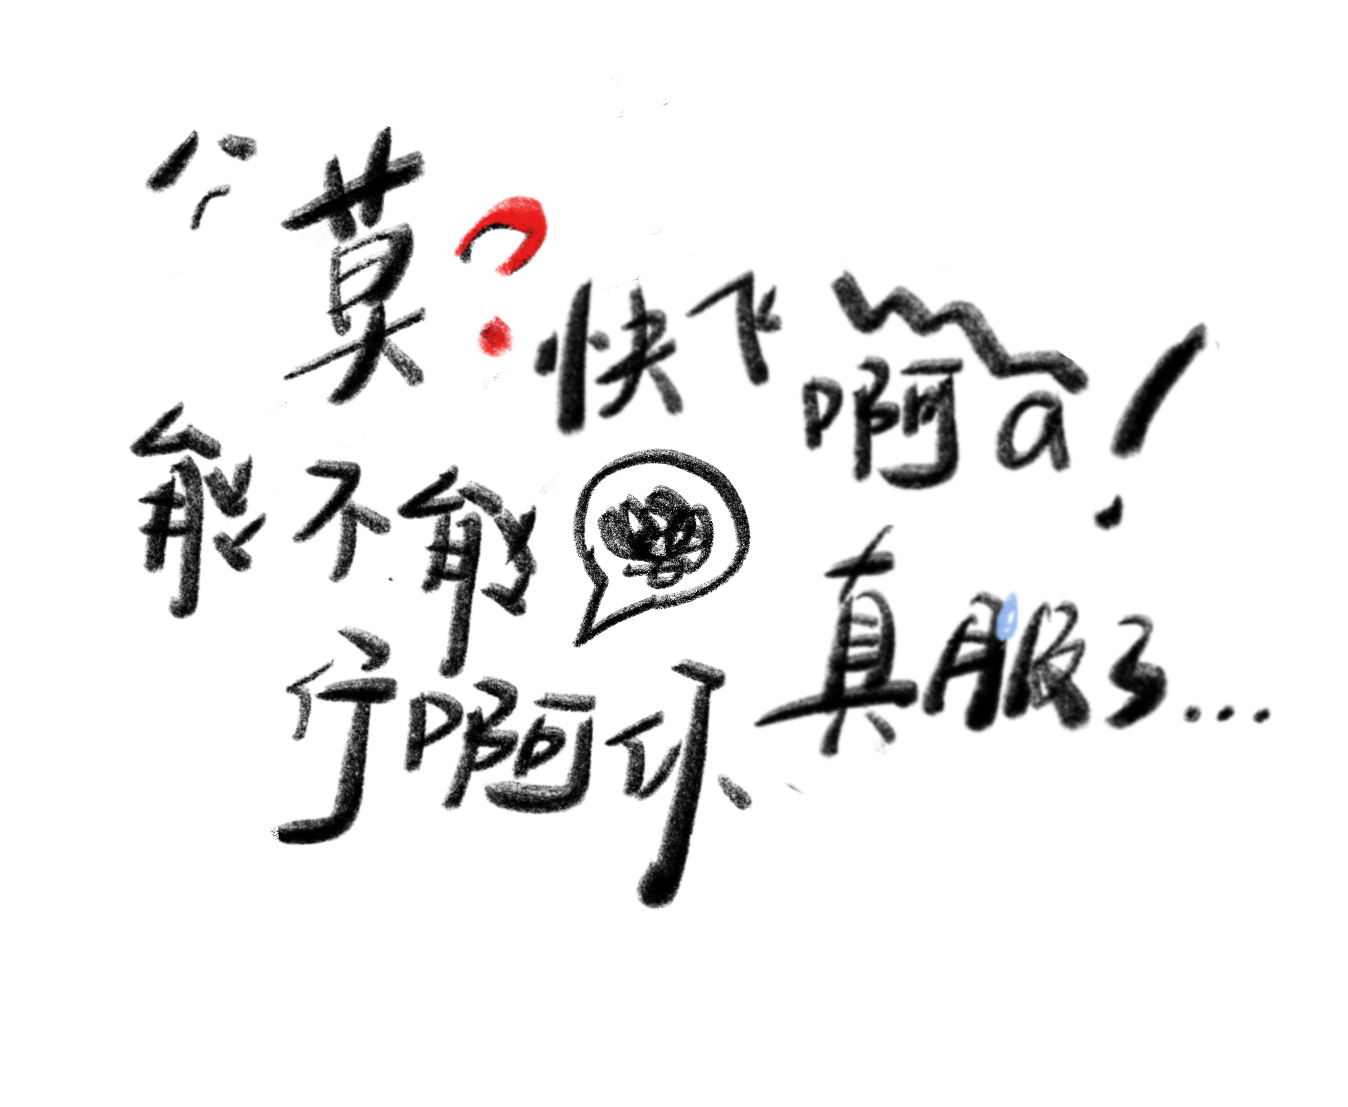 莫?快飞啊a!
能不能
行啊你
真服了...